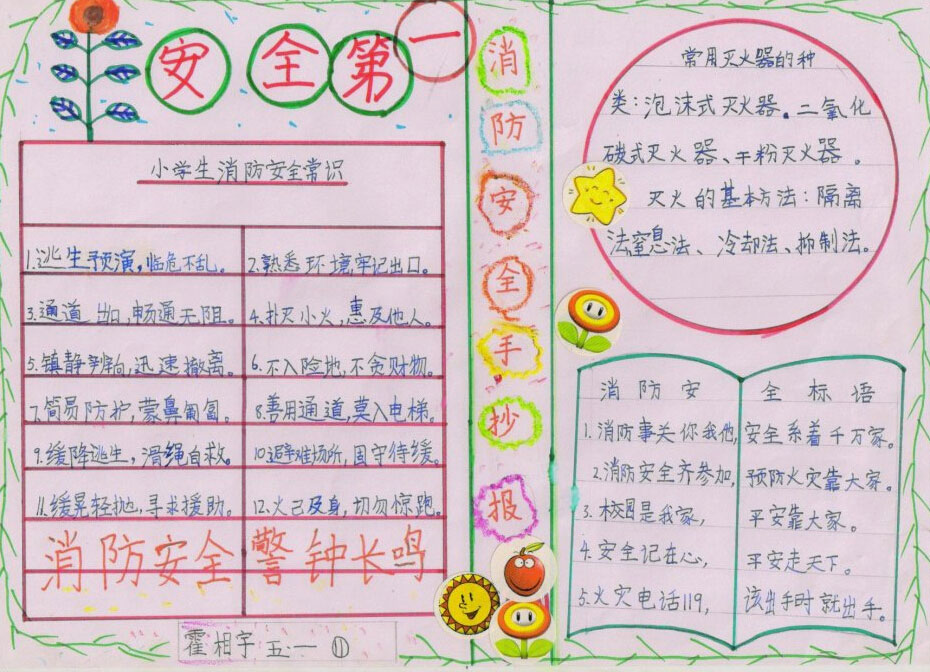 安全第一
小学生消防安全常识
1.逃生预演,临危不乱。 2.熟悉环境,牢记出口。
3.通道出口,畅通无阻。 4.扑灭小火,惠及他人。
5.镇静判向,迅速撤离。 6.不入险地,不贪财物。
7.简员防护,蒙鼻匍匐。 8.善用通道,莫入电梯。
9.缓降逃生,滑绳自救。 10避难场所,固守待缓。
11.缓晃轻抛,寻求援助。 12.火己及身,切勿惊跑。
消防安全警钟长鸣
霍相宇 五·一 ①
消
防
安
全
手
抄
报
常用灭火器的种
类:泡沫式灭火器。二氧化
碳式灭火器、干粉灭火器。
灭火的基本方法:隔离
法窒息法、冷却法、抑制法。
消防安全标语
1.消防事关你我他,安全系着千万家。
2.消防安全齐参加,预防火灾靠大家。
3.校园是我家,平安靠大家。
4.安全记在心,平安走天下。
5.火灾电话119,该出手时就出手。